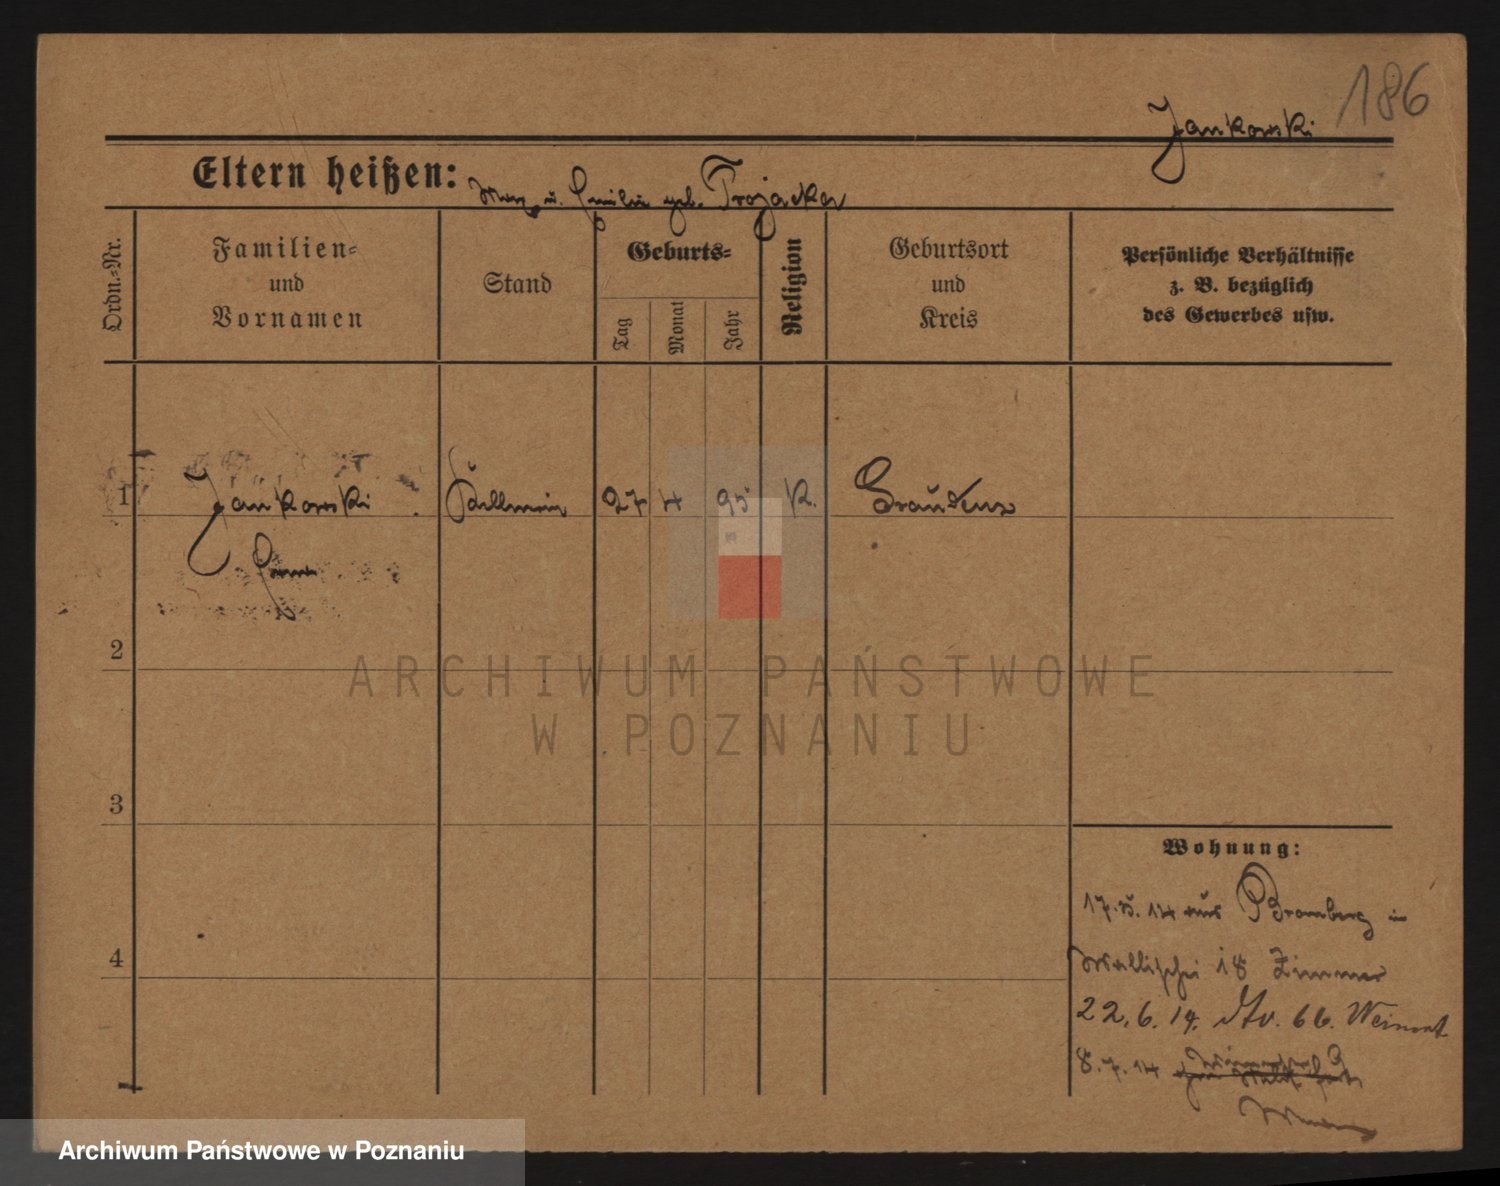 186
Jankowski
Eltern heißen: Max u. Emilie geb. Trojacka
Ordn.=Nr.
Familien=
und
Vornamen
Stand
Geburts=
Tag
Monat
Jahr
Religion
Geburtsort
und
Kreis
Persönliche Verhältnisse
z. B. bezüglich
des Gewerbes usw.
1 Jankowski Kellnerin 27 4 95 K. Graudenz
2
3
4
Wohnung:
17.5.14 aus Bromberg in
Wallischei 18 Zimmer
22.6.14. 66.
8.7.14
ARCHIWUM PAŃSTWOWE
W POZNANIU
Archiwum Państwowe w Poznaniu